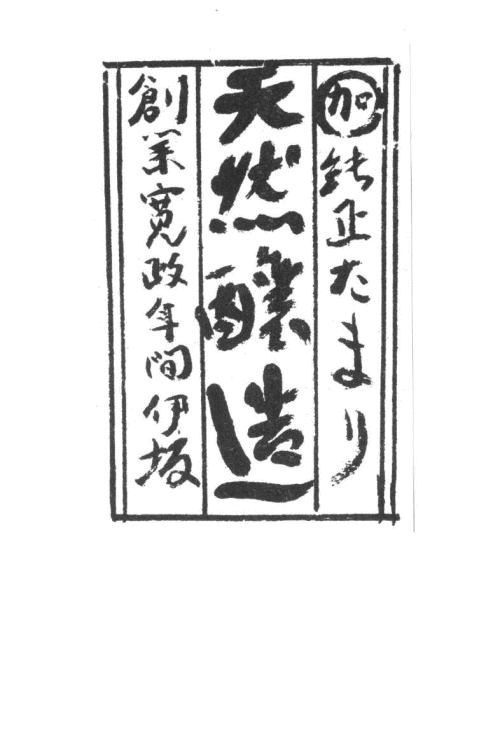 加 純正たまり
天然醸造
創業寛政年間伊坂